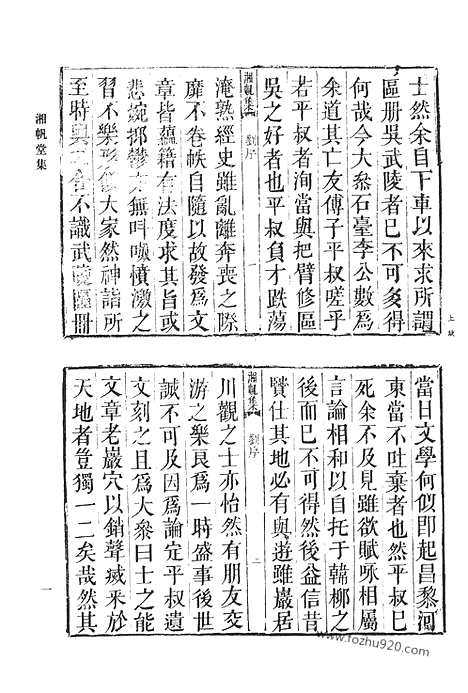 湘帆堂集
上缺
士然余自下車以來求所謂
區冊吳武陵者已不可多得
何哉今大叅石臺李公數爲
余道其亡友傅子平叔嗟乎
若平叔者洵當與把臂修區
吳之好者也平叔負才跌蕩
湘帆集 劉序 一
淹熟經史雖亂離奔喪之際
靡不卷帙自隨以故發爲文
章皆蘊藉有法度求其旨或
悲婉掷鬱亦無呌嘆憤激之
習不樂形似大家然神詣所
至時與合不識武陵區冊
當日文學何似即起昌黎河
東當不吐棄者也然平叔已
死余不及見雖欲賦咏相屬
言論相和以自托于韓柳之
後而已不可得然後益信昔
賢仕其地必有與遊雖巖居
湘帆集 劉序 二
川觀之士亦怡然有朋友交
游之樂良爲一時盛事後世
誠不可及因爲論定平叔遺
文刻之且爲大叅曰士之能
文章老巖穴以銷聲烕釆於
天地者豈獨一二矣哉然其
一
www.fozhu920.com